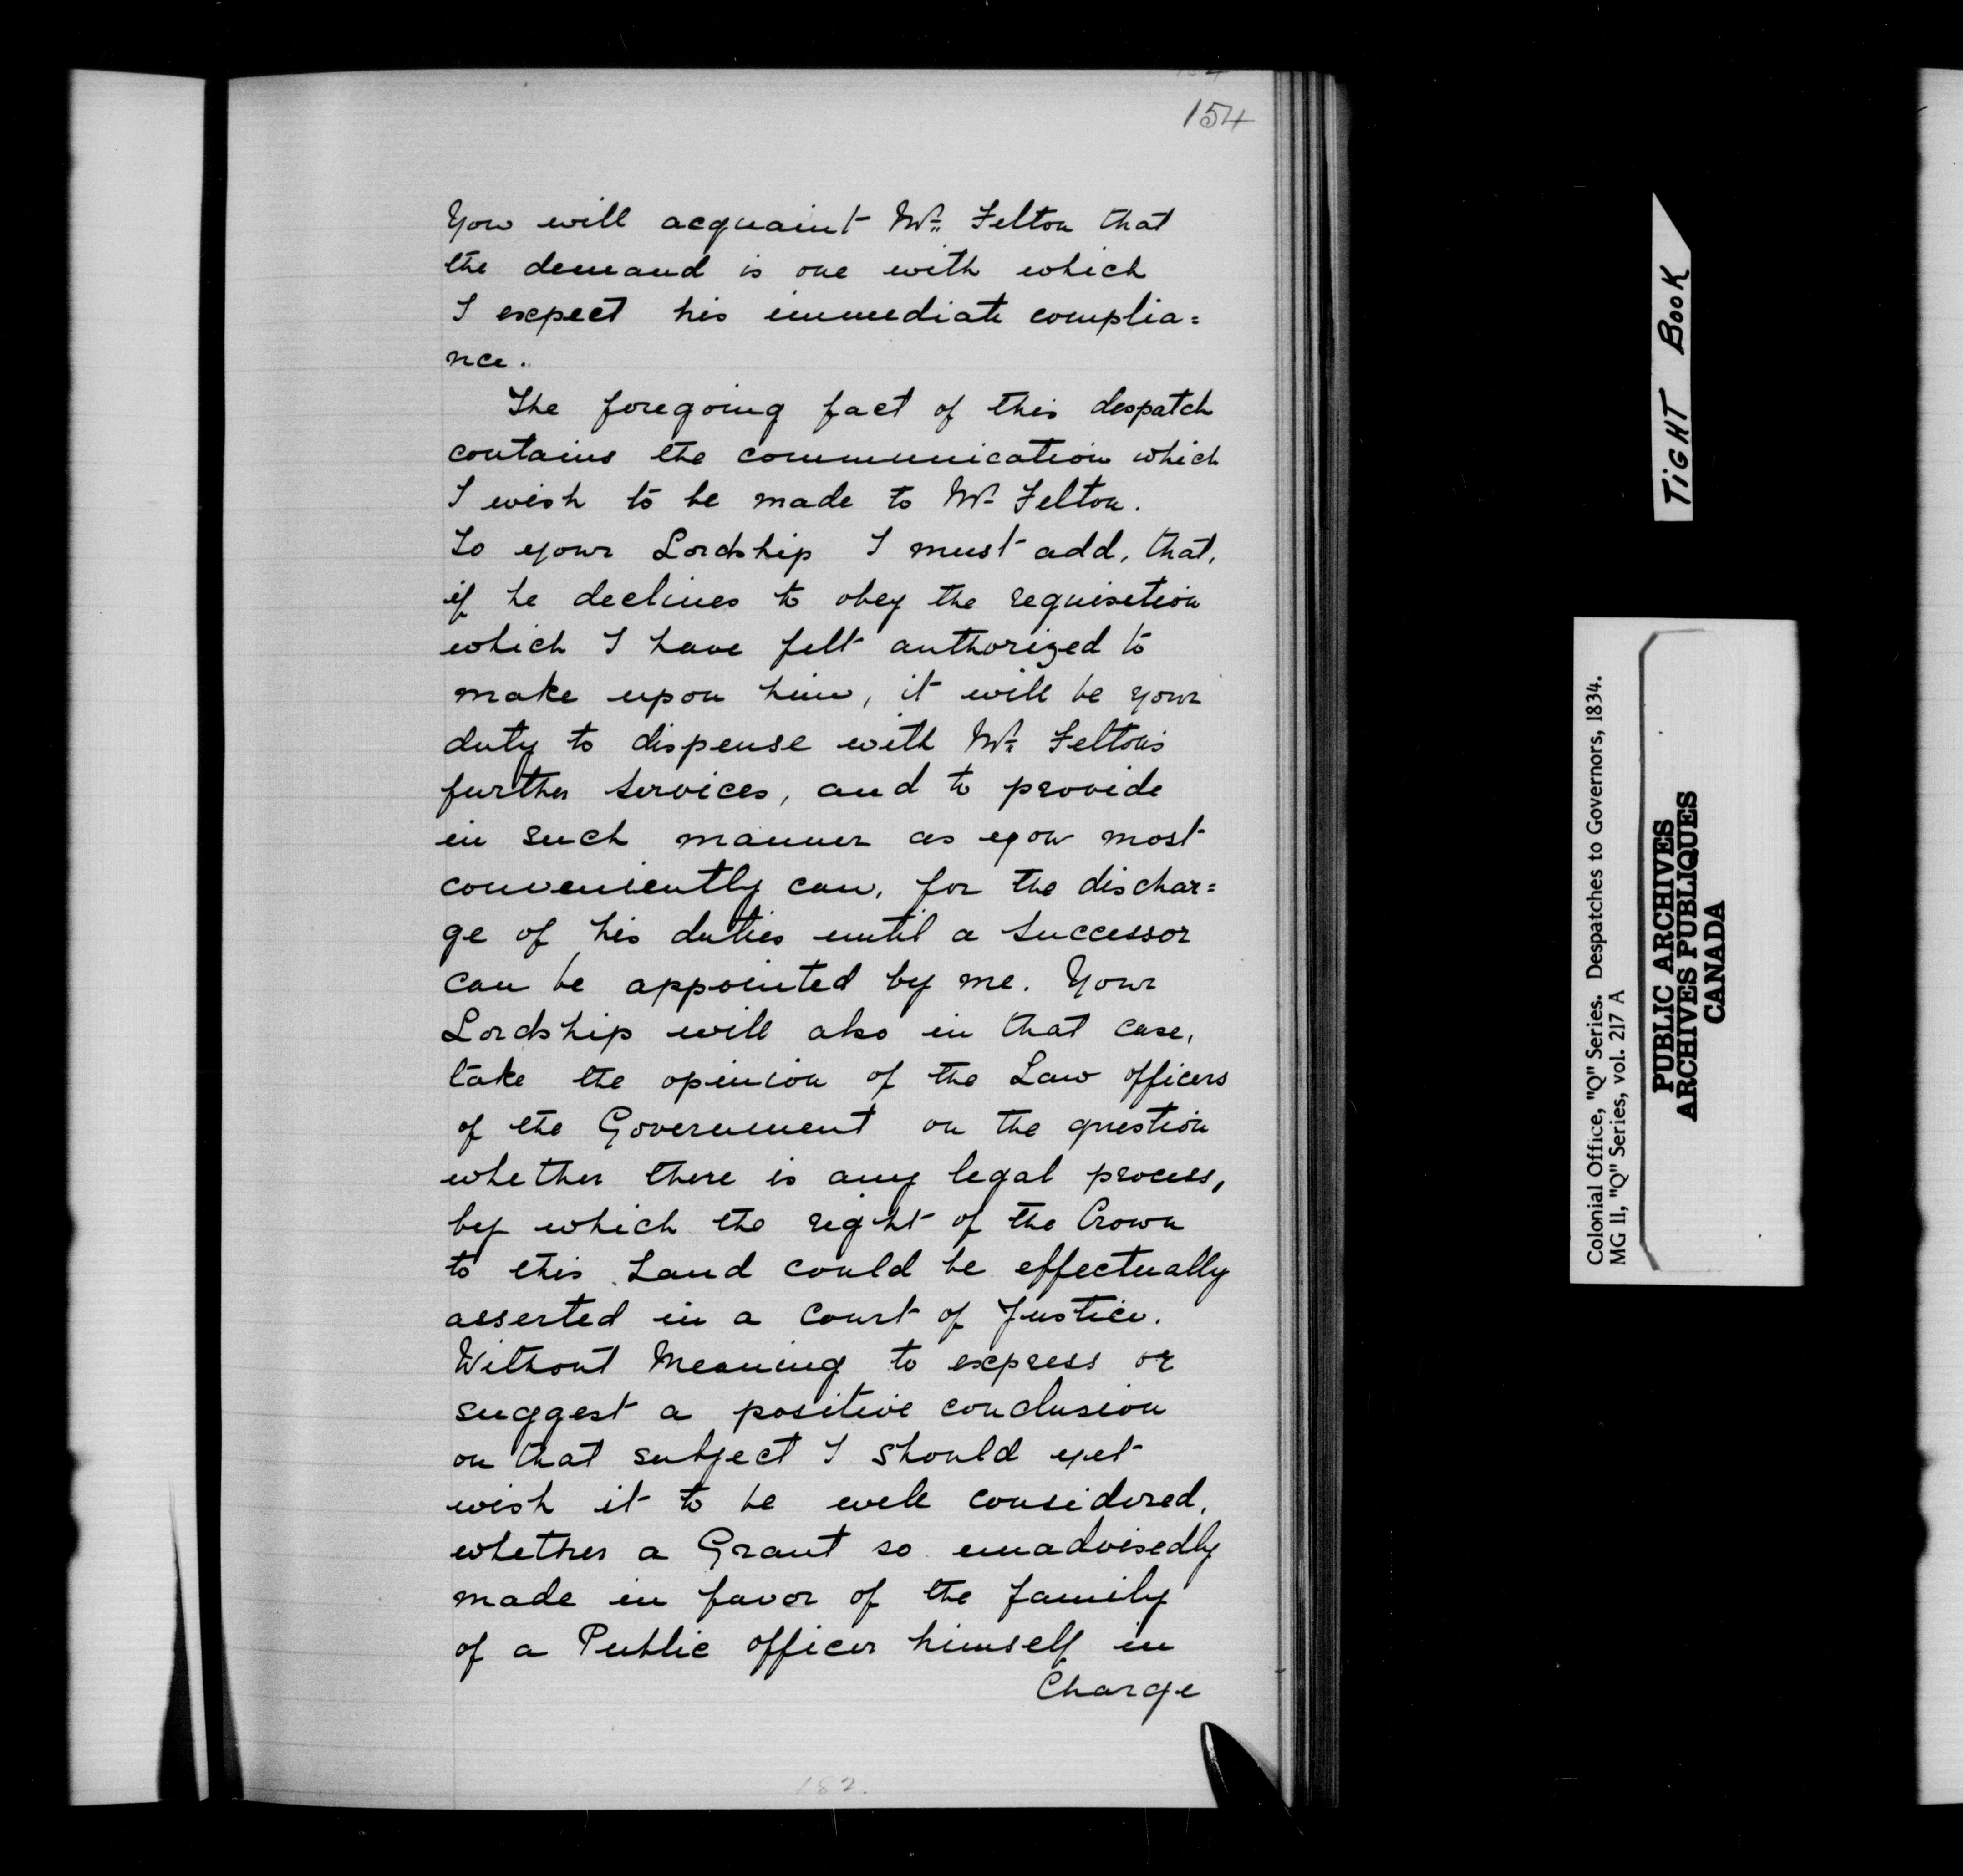 154
You will acquaint Mr. Felton that
the demand is one with which
I expect his immediate complia=
nce.
The foregoing fact of this despatch
contains the communication which
I wish to be made to Mr. Felton.
To your Lordship I must add, that,
if he declines to obey the requisition
which I have felt authorized to
make upon him, it will be your
duty to dispense with Mr. Felton's
further services, and to provide
in such manner as you most
conveniently can, for the dischar=
ge of his duties until a successor
can be appointed by me. Your
Lordship will also in that case,
take the opinion of the Law officers
of the Government on the question
whether there is any legal process,
by which the right of the Crown
to this Land could be effectually
asserted in a Court of Justice.
Without Meaning to express or
suggest a positive conclusion
on that subject I should yet
wish it to be well considered,
whether a Grant so unadvisedly
made in favor of the family
of a Public officer himself in
Charge
182.
TIGHT BOOK
Colonial Office, "Q" Series. Despatches to Governors, 1834.
MG 11, "Q" Series, vol. 217 A
PUBLIC ARCHIVES
ARCHIVES PUBLIQUES
CANADA